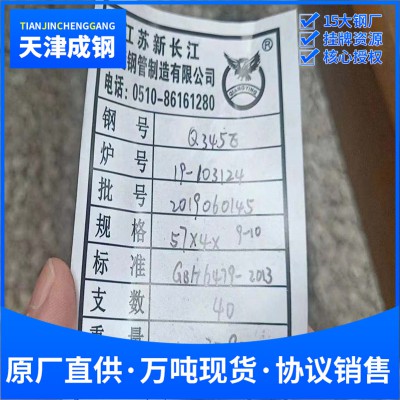 TIANJINCHENGGANG
天津成钢
15大钢厂
挂牌资源
核心授权
江苏新长江
钢管制造有限公司
电话:0510-86161280
®
钢号 Q345E
炉号 19-103124
批号 2019060145
规格 57X4-X 9-10
标准 GB/T6479-2013
支数 40
原厂直供·万吨现货·协议销售